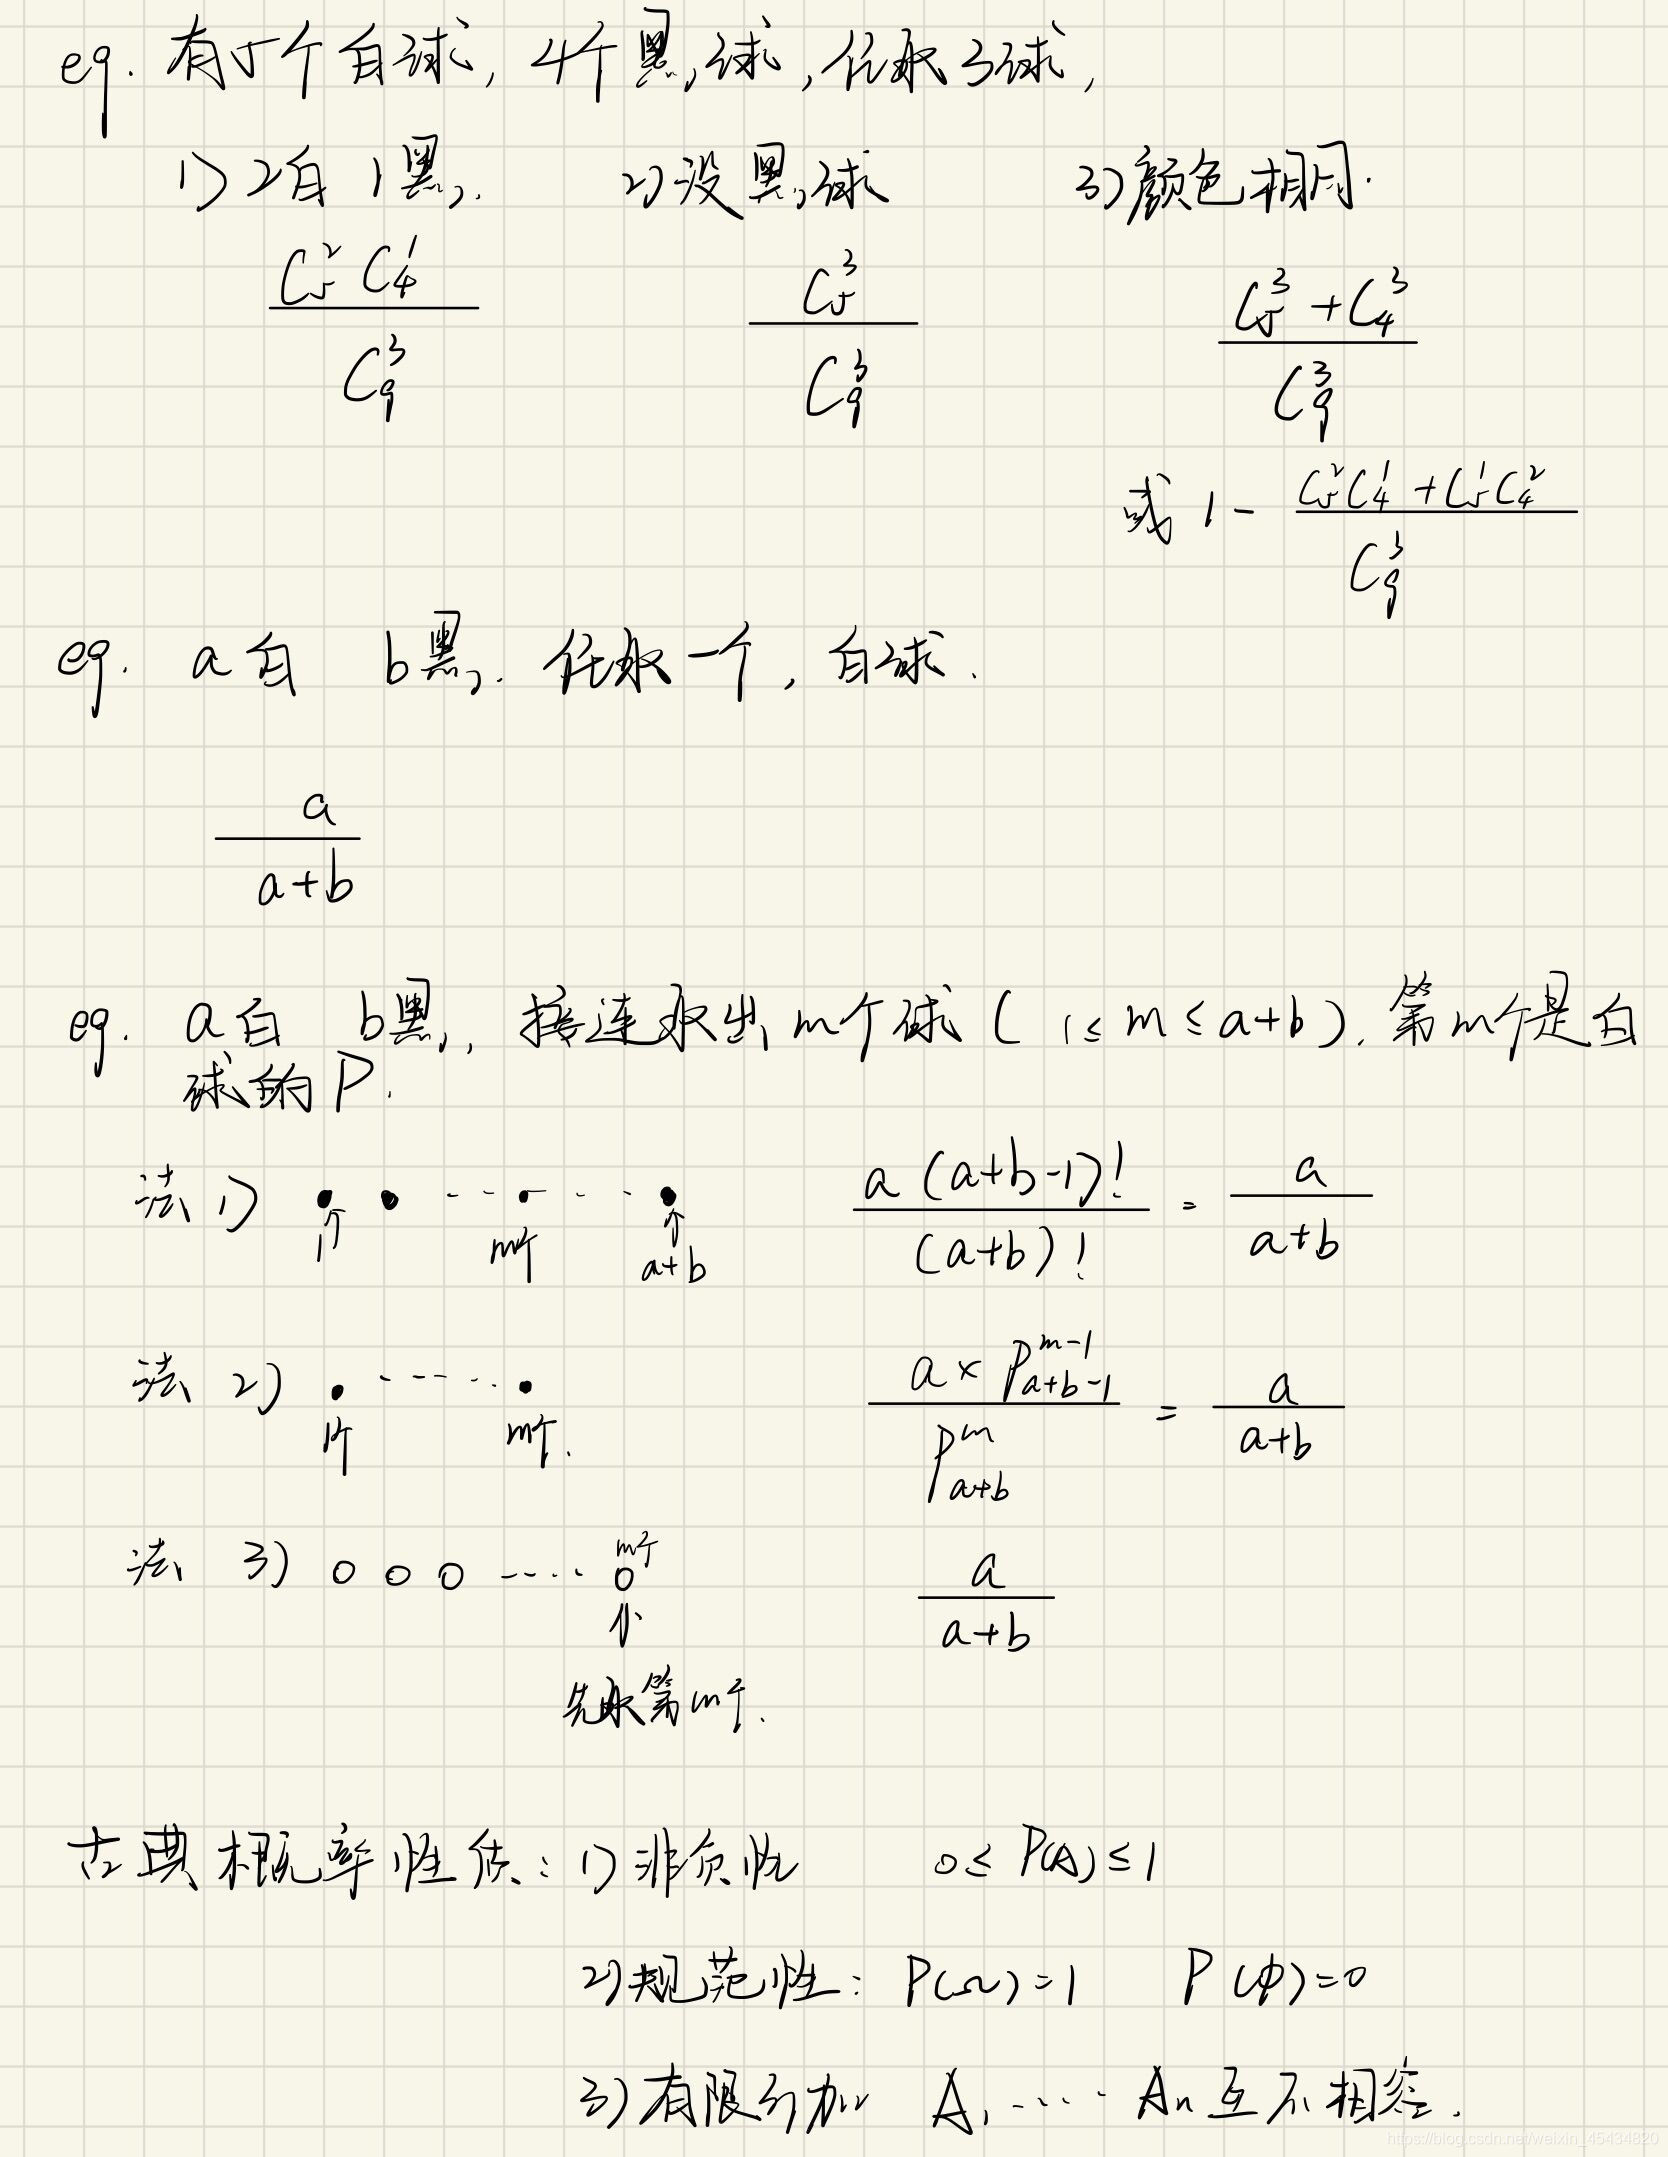 eg. 有5个白球, 4个黑球, 任取3球,
1) 2白 1黑. 2) 没黑球 3) 颜色相同.
C₅² C₄¹ / C₉³ C₅³ / C₉³ (C₅³ + C₄³) / C₉³
或 1 - (C₅² C₄¹ + C₅¹ C₄²) / C₉³
eg. a白 b黑. 任取一个, 白球.
a / (a+b)
eg. a白 b黑, 接连取出m个球 ( 1≤ m ≤ a+b ). 第m个是白
球的P.
法1) 1个 ····· m个 ····· a+b a (a+b-1)! / (a+b)! = a / (a+b)
法2) 1个 ······ m个. a × P_{a+b-1}^{m-1} / P_{a+b}^{m} = a / (a+b)
法3) ○ ○ ○ ····· ○ m个 a / (a+b)
先取第m个.
古典概率性质: 1) 非负性 0≤ P(A) ≤ 1
2) 规范性: P(Ω) = 1 P(φ) = 0
3) 有限可加 A₁ ····· Aₙ 互不相容.
https://blog.csdn.net/weixin_45434820